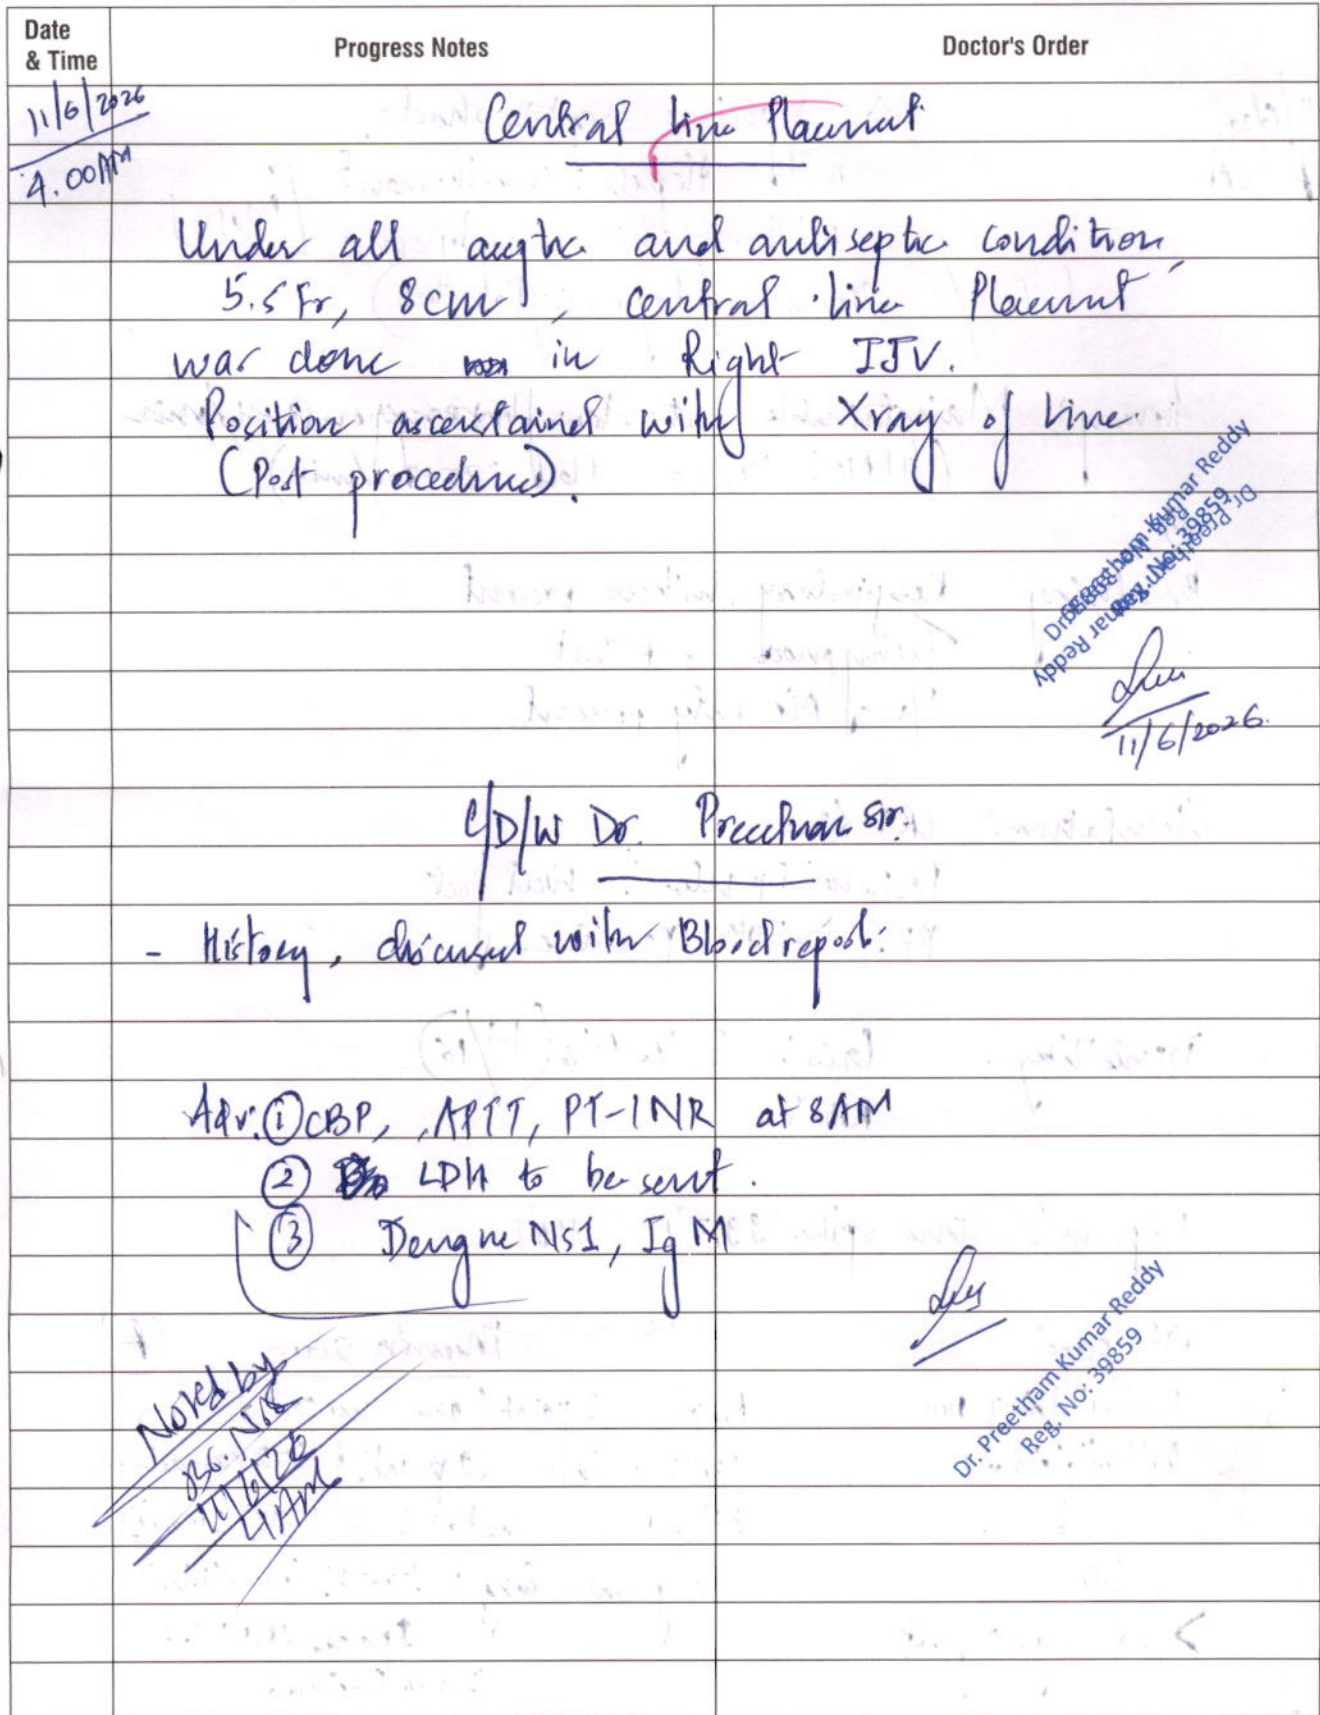 Date & Time
Progress Notes
Doctor's Order
11/6/2026
4.00AM
Central line Placement
Under all aseptic and antiseptic condition,
5.5 Fr, 8cm, central line Placement
was done in Right IJV.
Position ascerstained with Xray of line
(Post procedure).
Dr. Preetham Kumar Reddy
Reg. No: 39859
11/6/2026.
C/D/W Dr. Preetham sir.
- History, discussed with Blood report:
Adv: ① CBP, APTT, PT-INR at 8AM
② LDH to be sent.
③ Dengue NS1, IgM
Dr. Preetham Kumar Reddy
Reg. No: 39859
Noted by
11/6/26
4AM